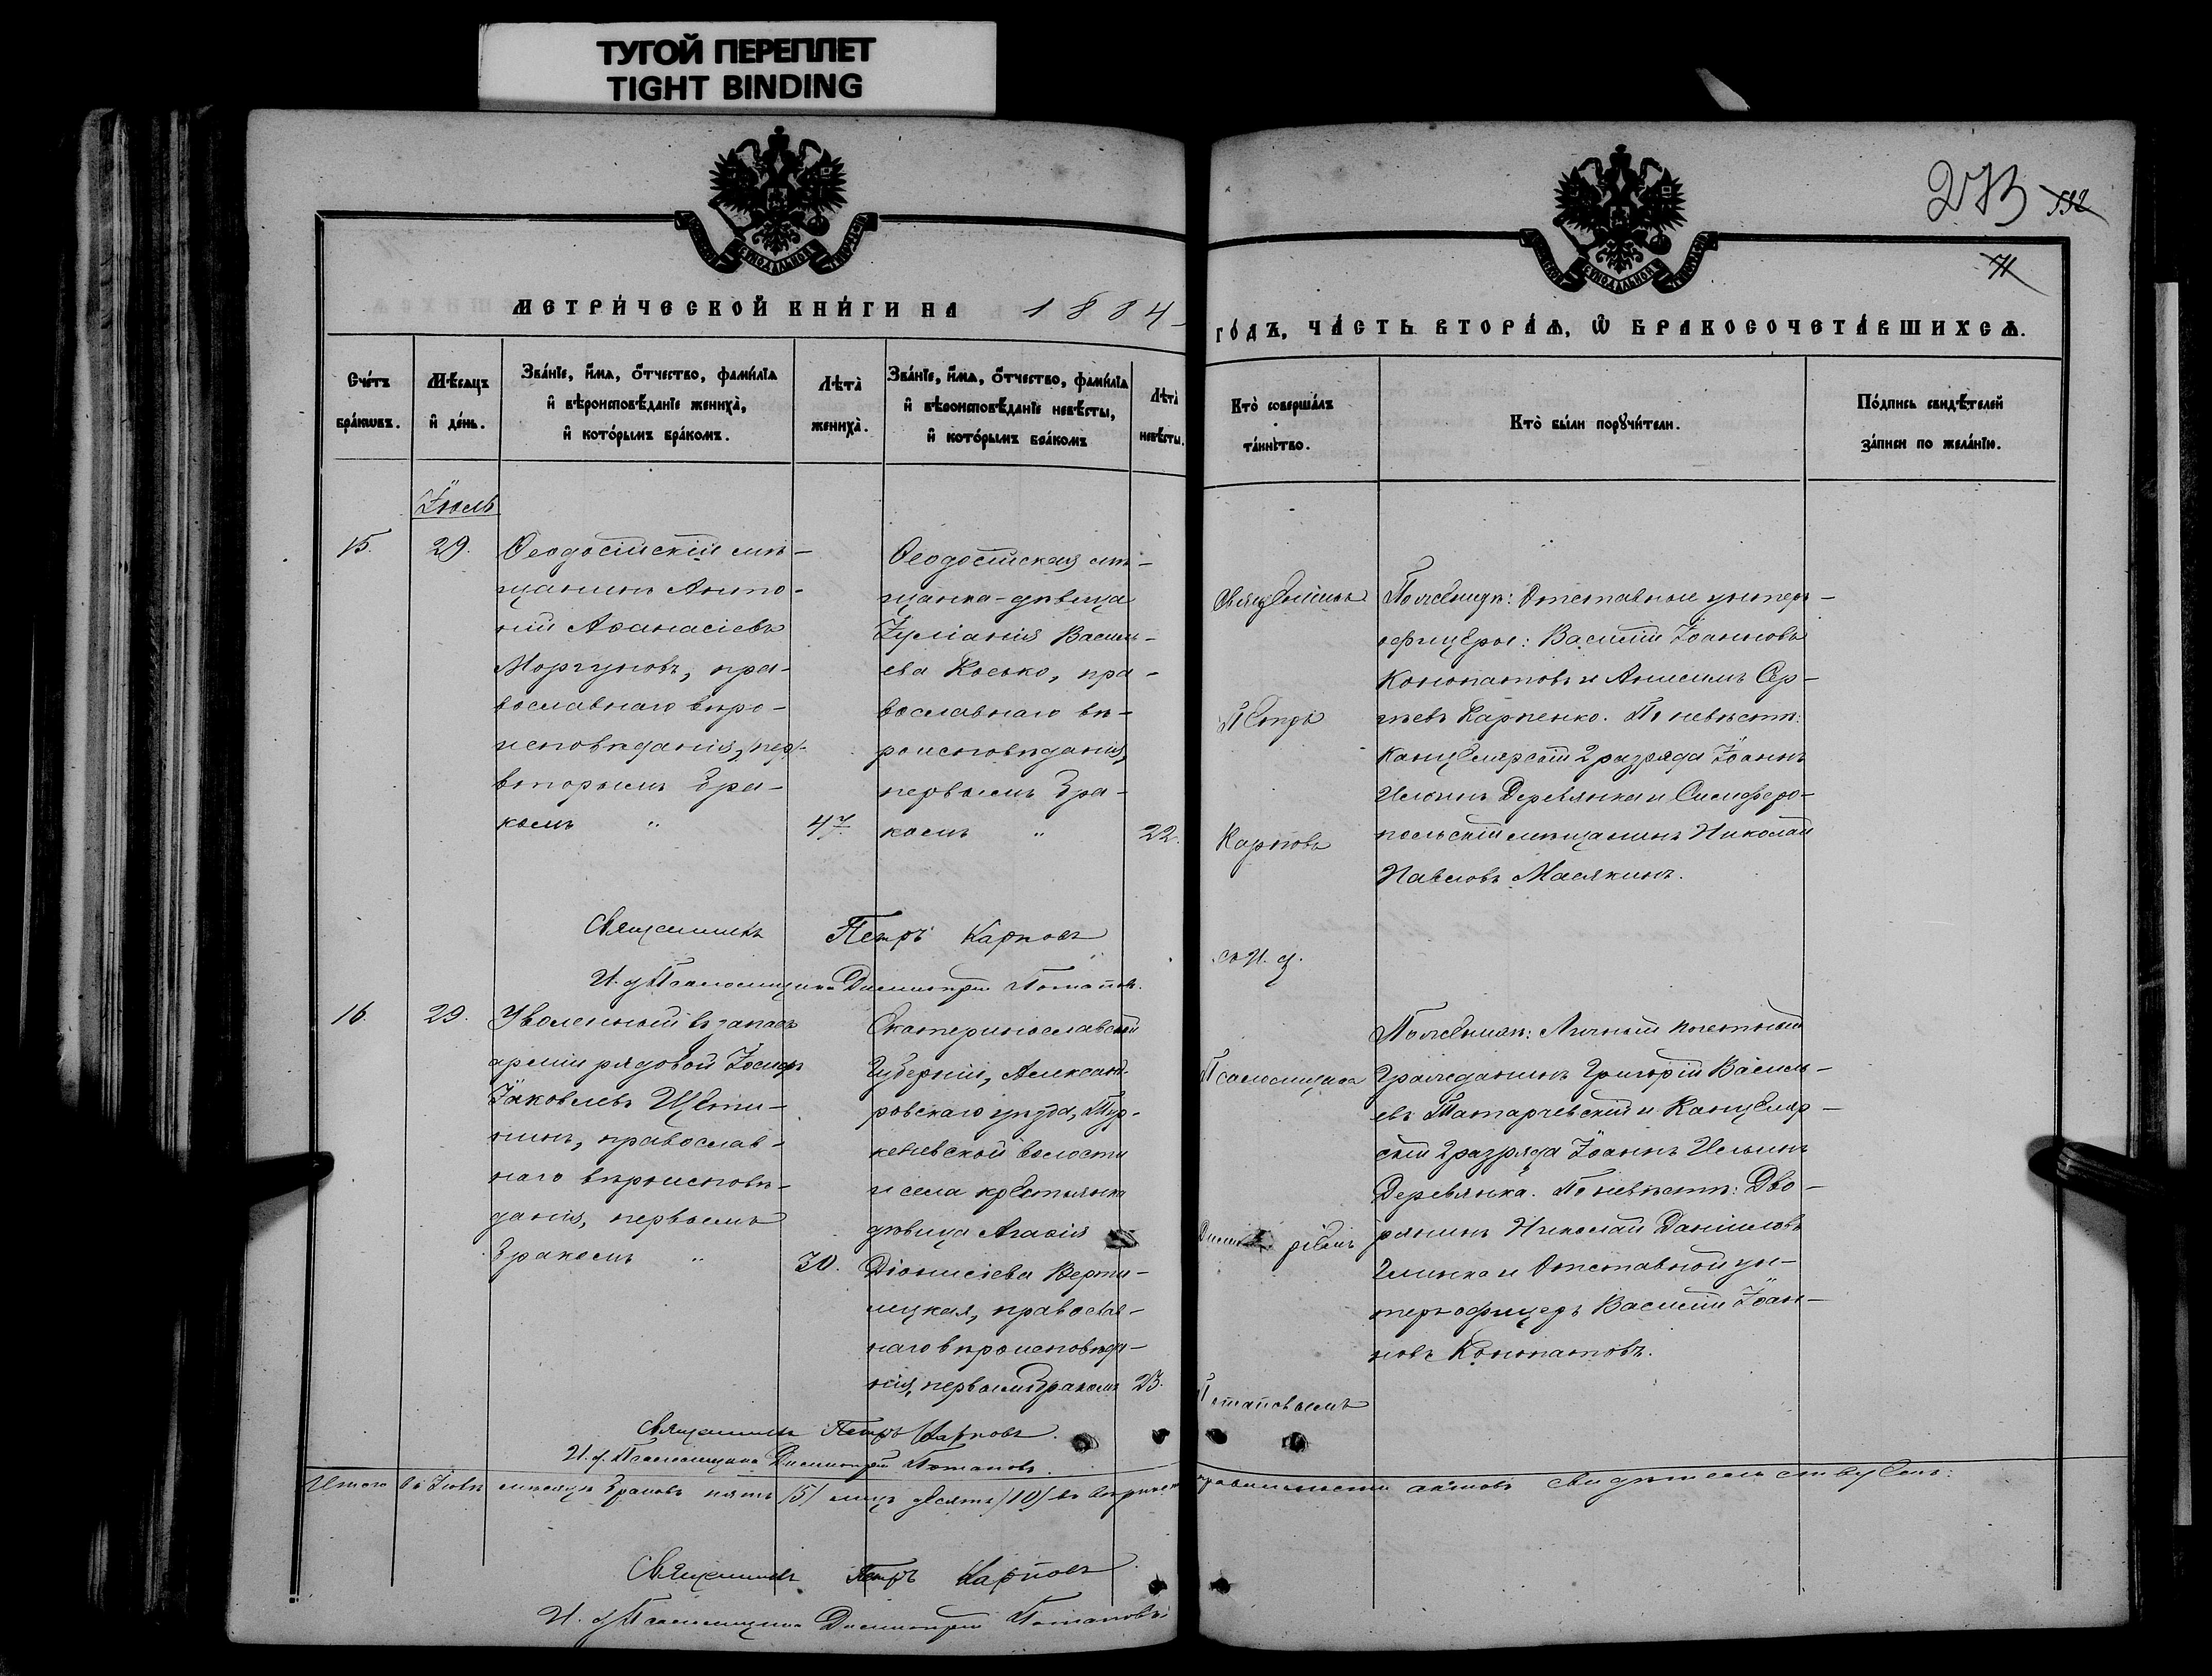 ТУГОЙ ПЕРЕПЛЕТ
TIGHT BINDING
273 532
71
МЕТРИ́ЧЕСКОЙ КНИ́ГИ НА 1884
ГО́ДЪ, ЧА́СТЬ ВТОРА́Ѧ, Ѡ҆ БРАКОСОЧЕТА́ВШИХСѦ.
Сче́тъ
бра́кѡвъ.
Мѣ́сѧцъ
и҆ де́нь.
Зва́нїе, и҆́мѧ, ѻ҆́тчество, фамилїа
и҆ вѣроисповѣ́данїе жениха̀,
и҆ кото́рымъ бра́комъ.
Лѣ́та
жениха̀.
Зва́нїе, и҆́мѧ, ѻ҆́тчество, фамилїа
и҆ вѣроисповѣ́данїе невѣ́сты,
и҆ кото́рымъ бра́комъ
Лѣ́та
невѣ́сты.
Кто̀ соверша́лъ
та́инство.
Кто̀ бы́ли порꙋчи́тели.
По́дпись свидѣ́телей
за́писи по жела́нїю.
Іюль
15.
29.
Ѳеодосійскій мѣ-
щанинъ Анто-
ній Аѳанасіевъ
Моргуновъ, пра-
вославнаго вѣро-
исповѣданія,
вторымъ бра-
комъ "
47
Ѳеодосійская мѣ-
щанка-дѣвица
Іуліанія Василь-
ева Косько, пра-
вославнаго вѣ-
роисповѣданія,
первымъ бра-
комъ "
22.
Священникъ
Петръ
Карповъ
съ И. д.
Псаломщика
Потаповымъ
По женихѣ: Отставные унтеръ-
офицеры: Василій Іоанновъ
Конопатовъ и Анисимъ Сер-
гѣевъ Карпенко. По невѣстѣ:
Канцелярскій 2 разряда Іоаннъ
Ильинъ Деревянка и Симферо-
польскій мѣщанинъ Николай
Павловъ Масякинъ.
Священникъ Петръ Карповъ
И. д. Псаломщика Димитрій Потаповъ.
16.
29.
Уволенный въ запасъ
арміи рядовой Іосифъ
Іаковлевъ Щети-
нинъ, православ-
наго вѣроисповѣ-
данія, первымъ
бракомъ "
30.
Екатеринославской
Губерніи, Алексан-
ровскаго уѣзда, Тур-
кеневской волости
и села крестьянка
дѣвица Агаѳія
Діонисіева Верти-
лицкая, православ-
наго вѣроисповѣда-
нія, первымъ бракомъ
23.
По женихѣ: Личный почетный
Гражданинъ Григорій Василь-
евъ Татарчевскій и Канцеляр-
скій 2 разряда Іоаннъ Ильинъ
Деревянка. По невѣстѣ: Дво-
рянинъ Николай Даніиловъ
Глинка и Отставной ун-
теръ-офицеръ Василій Іоан-
новъ Конопатовъ.
Священникъ Петръ Карповъ.
И. д. Псаломщика Димитрій Потаповъ.
Итого въ Іюлѣ мѣсяцѣ браковъ пять /5/ лицъ десять /10/ въ вѣрности правильности актовъ свидѣтельствуемъ:
Священникъ Петръ Карповъ
И. д. Псаломщика Димитрій Потаповъ